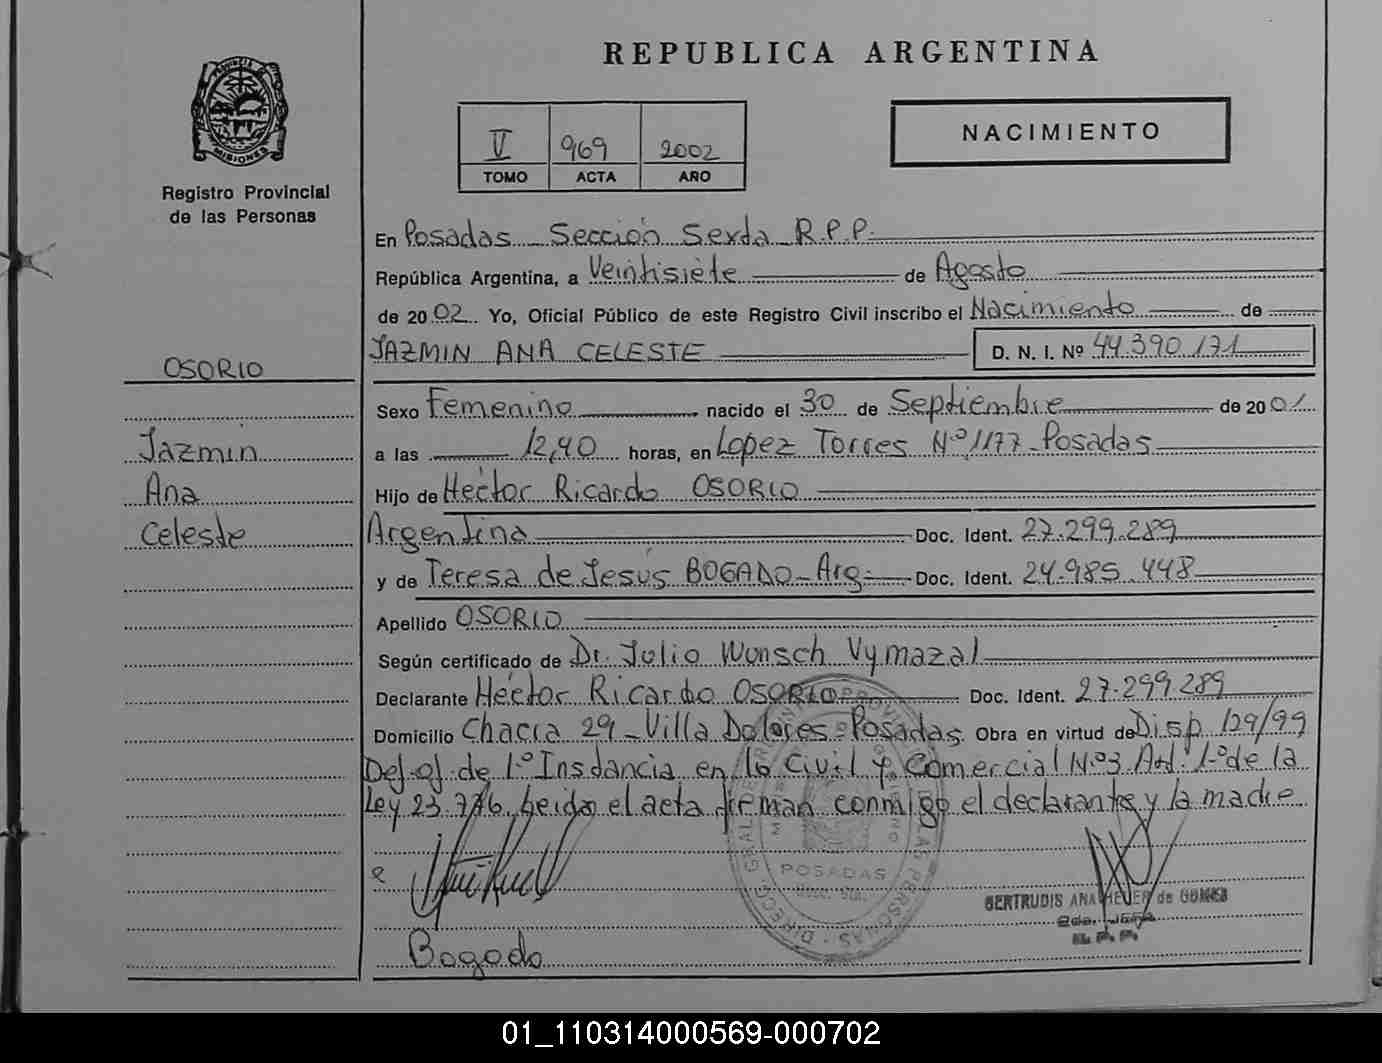 REPUBLICA ARGENTINA
PROVINCIA DE
MISIONES
Registro Provincial
de las Personas
V 969 2002
TOMO ACTA AÑO
NACIMIENTO
En Posadas Sección Sexta R.P.P.
República Argentina, a Veintisiete de Agosto
de 2002 Yo, Oficial Público de este Registro Civil inscribo el Nacimiento de
JAZMIN ANA CELESTE D. N. I. Nº 44.390.171
OSORIO
Jazmin
Ana
Celeste
Sexo Femenino nacido el 30 de Septiembre de 2001
a las 12,40 horas, en Lopez Torres Nº 1177-Posadas
Hijo de Héctor Ricardo OSORIO
Argentina Doc. Ident. 27.299.289
y de Teresa de Jesús BOGADO-Arg- Doc. Ident. 24.985.448
Apellido OSORIO
Según certificado de Dr. Julio Wunsch Vymazal
Declarante Héctor Ricardo OSORIO Doc. Ident. 27.299.289
Domicilio Chacra 29-Villa Dolores-Posadas Obra en virtud de Disp 129/99
Def. of. de 1º Instancia en lo Civil y Comercial Nº3 Art. 1º de la
Ley 23.776 Leida el acta firman conmigo el declarante y la madre
POSADAS
GERTRUDIS ANA de
Bogado
01_110314000569-000702